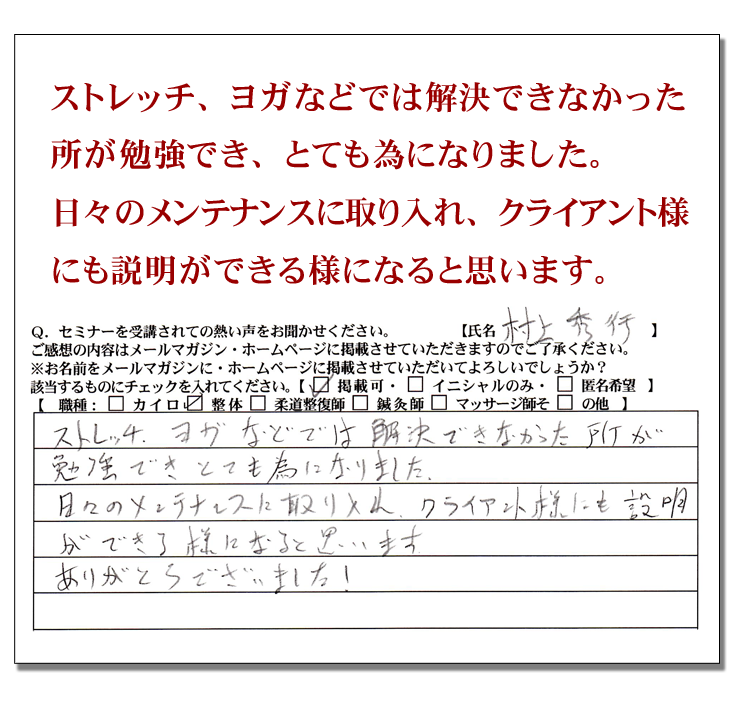 ストレッチ、ヨガなどでは解決できなかった
所が勉強でき、とても為になりました。
日々のメンテナンスに取り入れ、クライアント様
にも説明ができる様になると思います。
Q．セミナーを受講されての熱い声をお聞かせください。　【氏名 村上 秀行 】
ご感想の内容はメールマガジン・ホームページに掲載させていただきますのでご了承ください。
※お名前をメールマガジンに・ホームページに掲載させていただいてよろしいでしょうか？
該当するものにチェックを入れてください。【 ☑ 掲載可・ □ イニシャルのみ・ □ 匿名希望 】
【 職種： □ カイロ ☑ 整体 □ 柔道整復師 □ 鍼灸師 □ マッサージ師そ □ の他 】
ストレッチ、ヨガなどでは解決できなかった所が
勉強できとても為になりました。
日々のメンテナンスに取り入れ、クライアント様にも説明
ができる様になると思います
ありがとうございました！